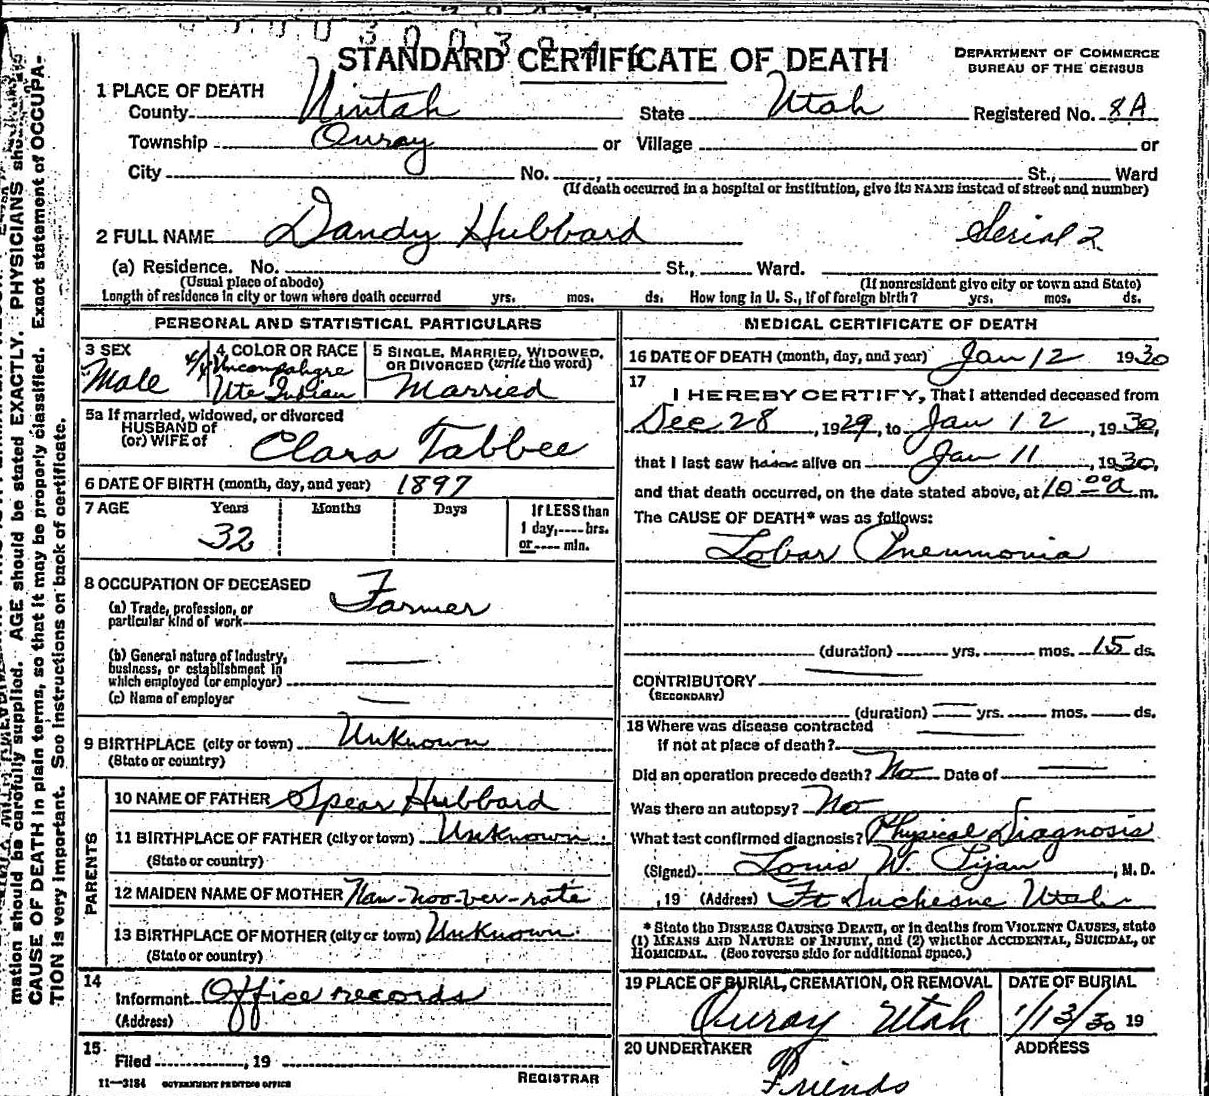 STANDARD CERTIFICATE OF DEATH
DEPARTMENT OF COMMERCE
BUREAU OF THE CENSUS
1 PLACE OF DEATH
County Uintah State Utah Registered No. 8A
Township Ouray or Village or
City No. , St., Ward
(If death occurred in a hospital or institution, give its NAME instead of street and number)
2 FULL NAME Dandy Hubbard Serial 2
(a) Residence. No. St., Ward.
(Usual place of abode) (If nonresident give city or town and State)
Length of residence in city or town where death occurred yrs. mos. ds. How long in U. S., if of foreign birth? yrs. mos. ds.
PERSONAL AND STATISTICAL PARTICULARS
3 SEX
Male
4 COLOR OR RACE
4/4 Uncompahgre
Ute Indian
5 SINGLE, MARRIED, WIDOWED,
OR DIVORCED (write the word)
Married
5a If married, widowed, or divorced
HUSBAND of
(or) WIFE of Clara Tabbee
6 DATE OF BIRTH (month, day, and year) 1897
7 AGE Years Months Days If LESS than
1 day, hrs.
or min.
32
8 OCCUPATION OF DECEASED
(a) Trade, profession, or
particular kind of work Farmer
(b) General nature of industry,
business, or establishment in
which employed (or employer)
(c) Name of employer
9 BIRTHPLACE (city or town) Unknown
(State or country)
PARENTS
10 NAME OF FATHER Spear Hubbard
11 BIRTHPLACE OF FATHER (city or town) Unknown
(State or country)
12 MAIDEN NAME OF MOTHER Nau-noo-ver-rats
13 BIRTHPLACE OF MOTHER (city or town) Unknown
(State or country)
14
Informant Office records
(Address)
15
Filed , 19
REGISTRAR
11—3184 GOVERNMENT PRINTING OFFICE
MEDICAL CERTIFICATE OF DEATH
16 DATE OF DEATH (month, day, and year) Jan 12 1930
17
I HEREBY CERTIFY, That I attended deceased from
Dec 28, 1929, to Jan 12, 1930,
that I last saw him alive on Jan 11, 1930,
and that death occurred, on the date stated above, at 10 00 a m.
The CAUSE OF DEATH* was as follows:
Lobar Pneumonia
(duration) yrs. mos. 15 ds.
CONTRIBUTORY
(SECONDARY)
(duration) yrs. mos. ds.
18 Where was disease contracted
if not at place of death?
Did an operation precede death? No Date of
Was there an autopsy? No
What test confirmed diagnosis? Physical Diagnosis
(Signed) Louis W. Pijan, M. D.
, 19 (Address) Ft Duchesne Utah
* State the DISEASE CAUSING DEATH, or in deaths from VIOLENT CAUSES, state
(1) MEANS AND NATURE OF INJURY, and (2) whether ACCIDENTAL, SUICIDAL, or
HOMICIDAL. (See reverse side for additional space.)
19 PLACE OF BURIAL, CREMATION, OR REMOVAL
Ouray Utah
DATE OF BURIAL
1/13/30 19
20 UNDERTAKER
Friends
ADDRESS
mation should be carefully supplied. AGE should be stated EXACTLY. PHYSICIANS should
CAUSE OF DEATH in plain terms, so that it may be properly classified. Exact statement of OCCUPA-
TION is very important. See instructions on back of certificate.